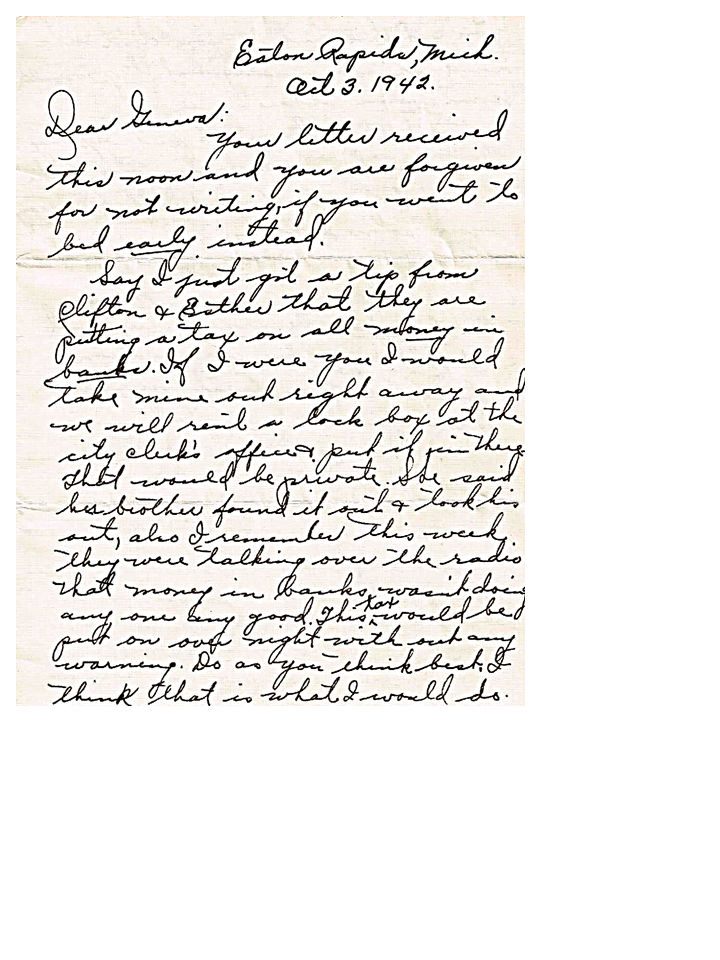 Eaton Rapids, Mich.
Oct 3. 1942.
Dear Geneva:
Your letter received
this noon and you are forgiven
for not writing, if you went to
bed early instead.
Say I just got a tip from
Clifton & Esther that they are
putting a tax on all money in
banks. If I were you I would
take mine out right away and
we will rent a lock box at the
city clerk's office & put it in there
that would be private. She said
her brother found it out & took his
out, also I remember this week
they were talking over the radio
that money in banks wasn't doing
any one any good. This tax would be
put on over night with out any
warning. Do as you think best. I
think that is what I would do.